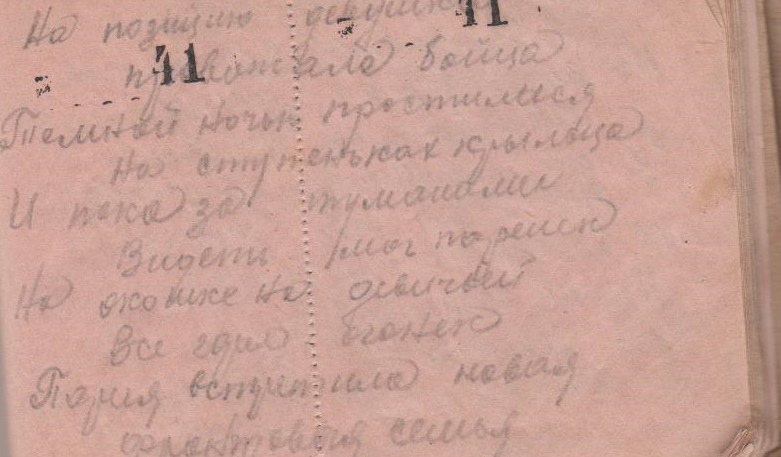 На позицию девушка
41
41
провожала бойца
Темной ночью простилися
На ступеньках крыльца
И пока за туманами
Видеть мог паренек
На окошке на девичьей
Все горел огонек
Парня встретила новая
фронтовая семья